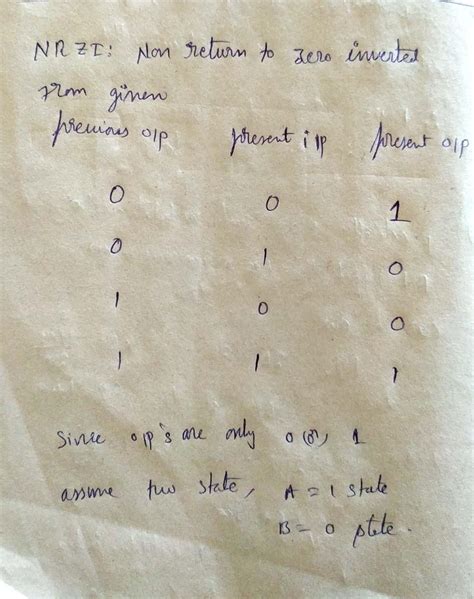 NRZI: Non return to zero inverted
From given
previous o/p present i/p present o/p
0 0 1
0 1 0
1 0 0
1 1 1
Since o/p's are only 0 (or) 1
assume two state, A = 1 state
B = 0 state.